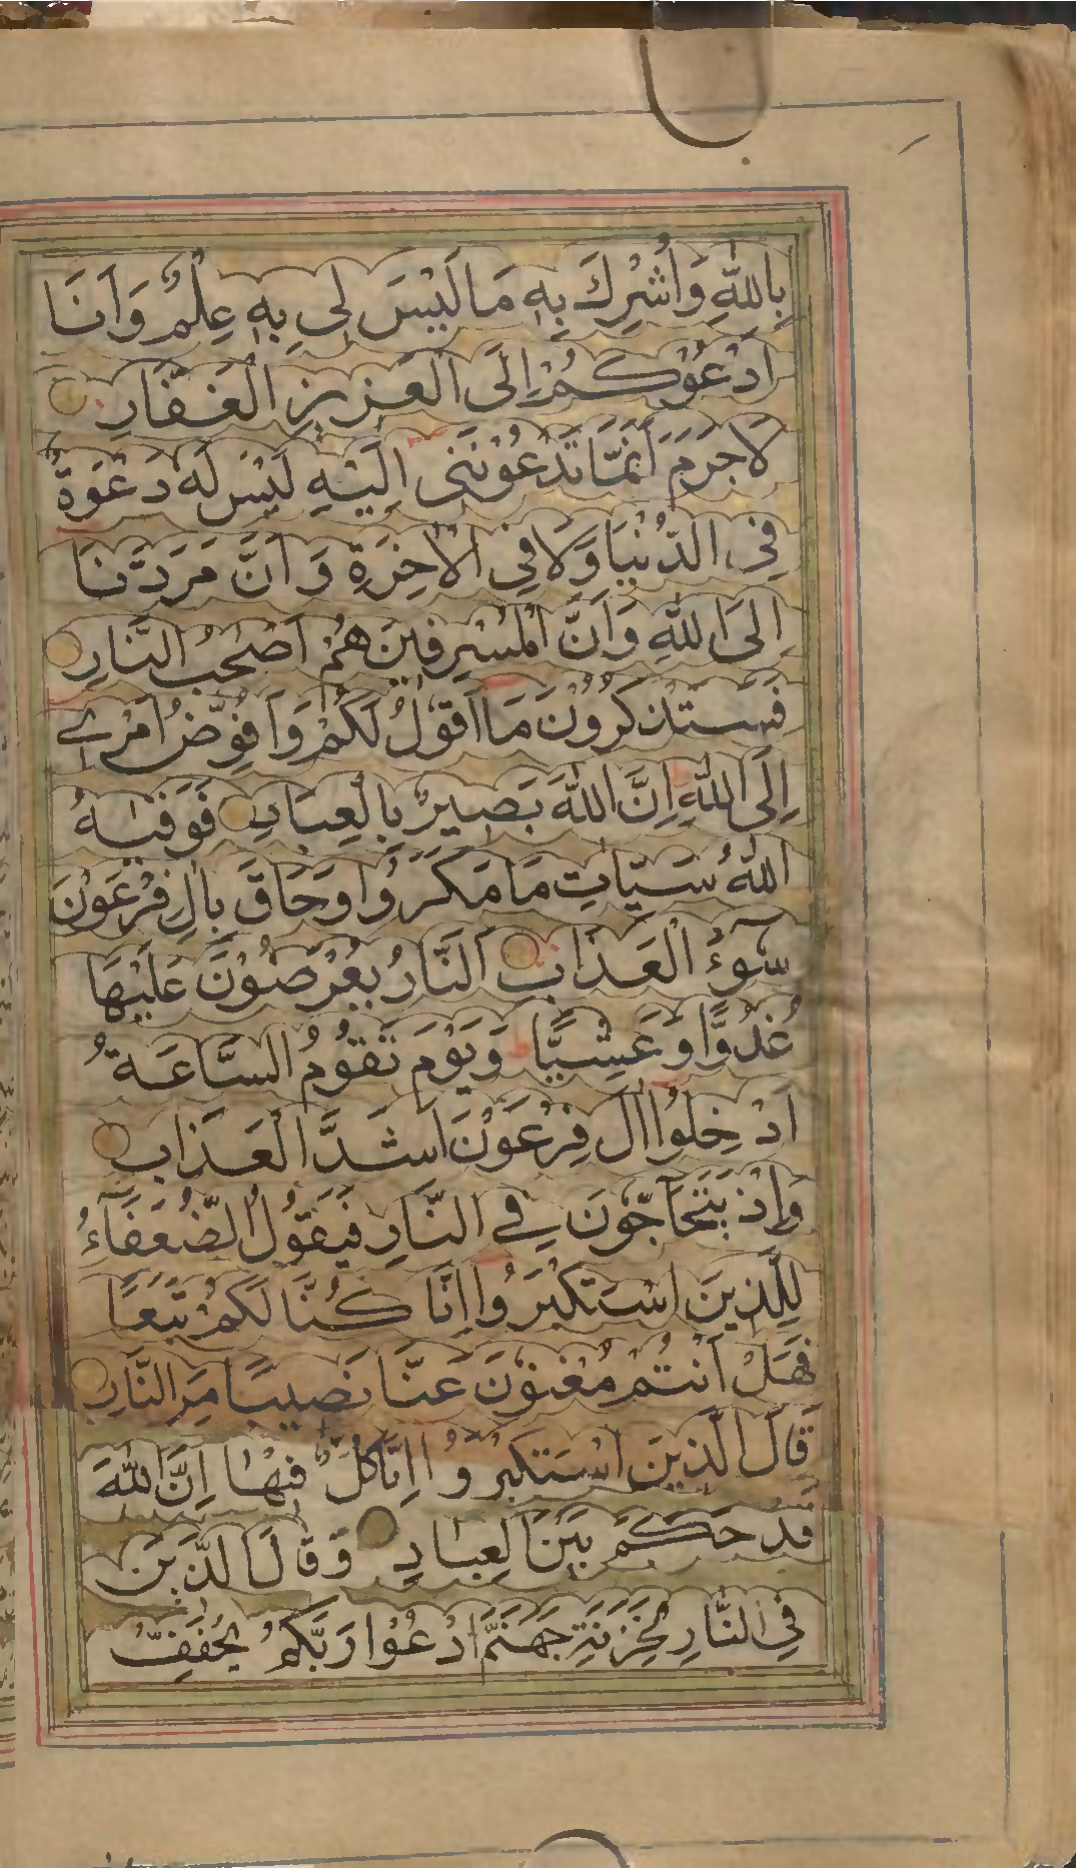 بِاللّٰهِ وَاُشْرِكَ بِهٖ مَا لَيْسَ لِى بِهٖ عِلْمٌ وَاَنَا
اَدْعُوْكُمْ اِلَى الْعَزِيزِ الْغَفَّارِ
لَا جَرَمَ اَنَّمَا تَدْعُوْنَنِى اِلَيْهِ لَيْسَ لَهٗ دَعْوَةٌ
فِى الدُّنْيَا وَلَا فِى الْاٰخِرَةِ وَاَنَّ مَرَدَّنَا
اِلَى اللّٰهِ وَاَنَّ الْمُسْرِفِينَ هُمْ اَصْحٰبُ النَّارِ
فَسَتَذْكُرُوْنَ مَا اَقُوْلُ لَكُمْ وَاُفَوِّضُ اَمْرِى
اِلَى اللّٰهِ اِنَّ اللّٰهَ بَصِيرٌ بِالْعِبَادِ فَوَقٰيهُ
اللّٰهُ سَيِّاٰتِ مَا مَكَرُوْا وَحَاقَ بِاٰلِ فِرْعَوْنَ
سُوْٓءُ الْعَذَابِ اَلنَّارُ يُعْرَضُوْنَ عَلَيْهَا
غُدُوًّا وَّعَشِيًّا وَيَوْمَ تَقُوْمُ السَّاعَةُ
اَدْخِلُوْا اٰلَ فِرْعَوْنَ اَشَدَّ الْعَذَابِ
وَاِذْ يَتَحَآجُّوْنَ فِى النَّارِ فَيَقُوْلُ الضُّعَفَآءُ
لِلَّذِينَ اسْتَكْبَرُوْا اِنَّا كُنَّا لَكُمْ تَبَعًا
فَهَلْ اَنْتُمْ مُغْنُوْنَ عَنَّا نَصِيبًا مِنَ النَّارِ
قَالَ الَّذِينَ اسْتَكْبَرُوْا اِنَّا كُلٌّ فِيْهَا اِنَّ اللّٰهَ
قَدْ حَكَمَ بَيْنَ الْعِبَادِ وَقَالَ الَّذِينَ
فِى النَّارِ لِخَزَنَةِ جَهَنَّمَ ادْعُوْا رَبَّكُمْ يُخَفِّفْ